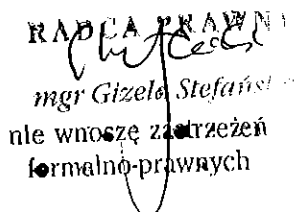 RADCA PRAWNY
mgr Gizela Stefańs
nie wnoszę zastrzeżeń
formalno-prawnych